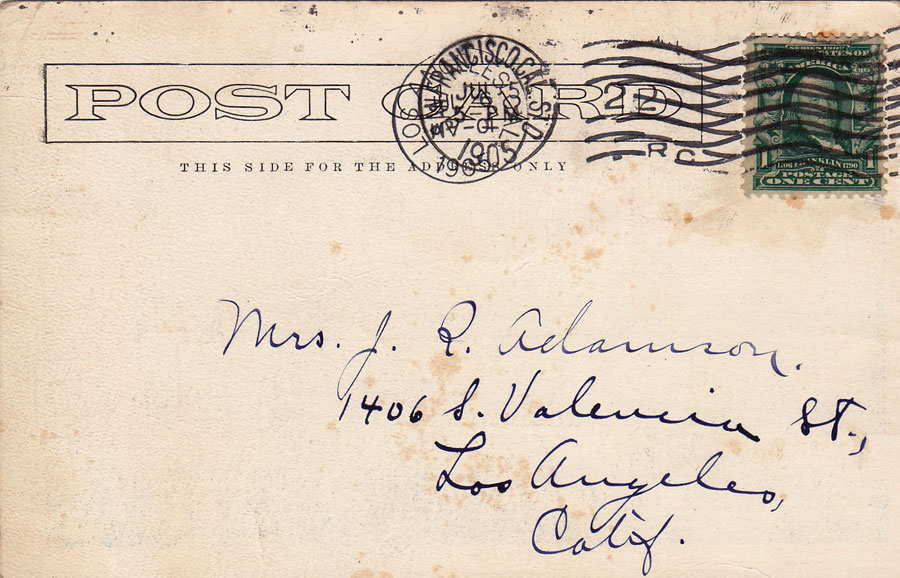 POST CARD
THIS SIDE FOR THE ADDRESS ONLY
SAN FRANCISCO, CAL.
1905
LOS
1905
R C
SERIES 1902
1706 FRANKLIN 1790
POSTAGE
ONE CENT
Mrs. J. R. Adamson.
1406 S. Valencia St.,
Los Angeles,
Calif.